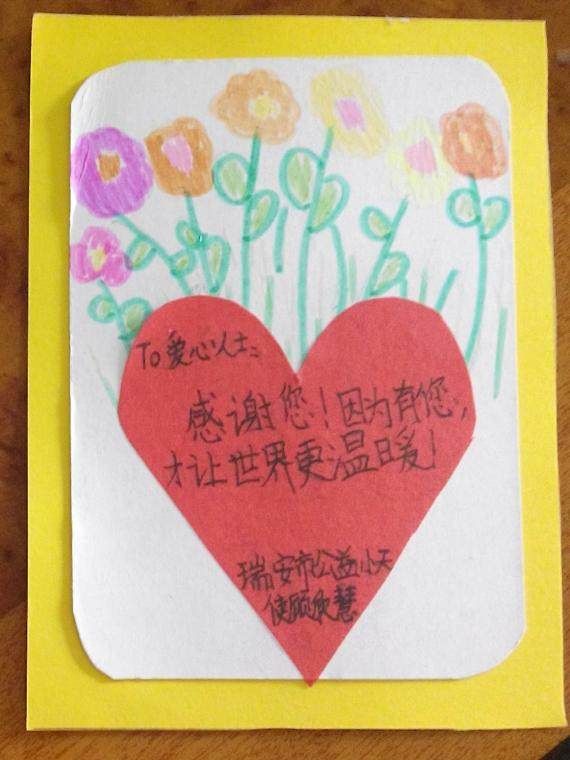 To 爱心人士:
感谢您！因为有您,
才让世界更温暖！
瑞安市公益小天
使顾欣慧